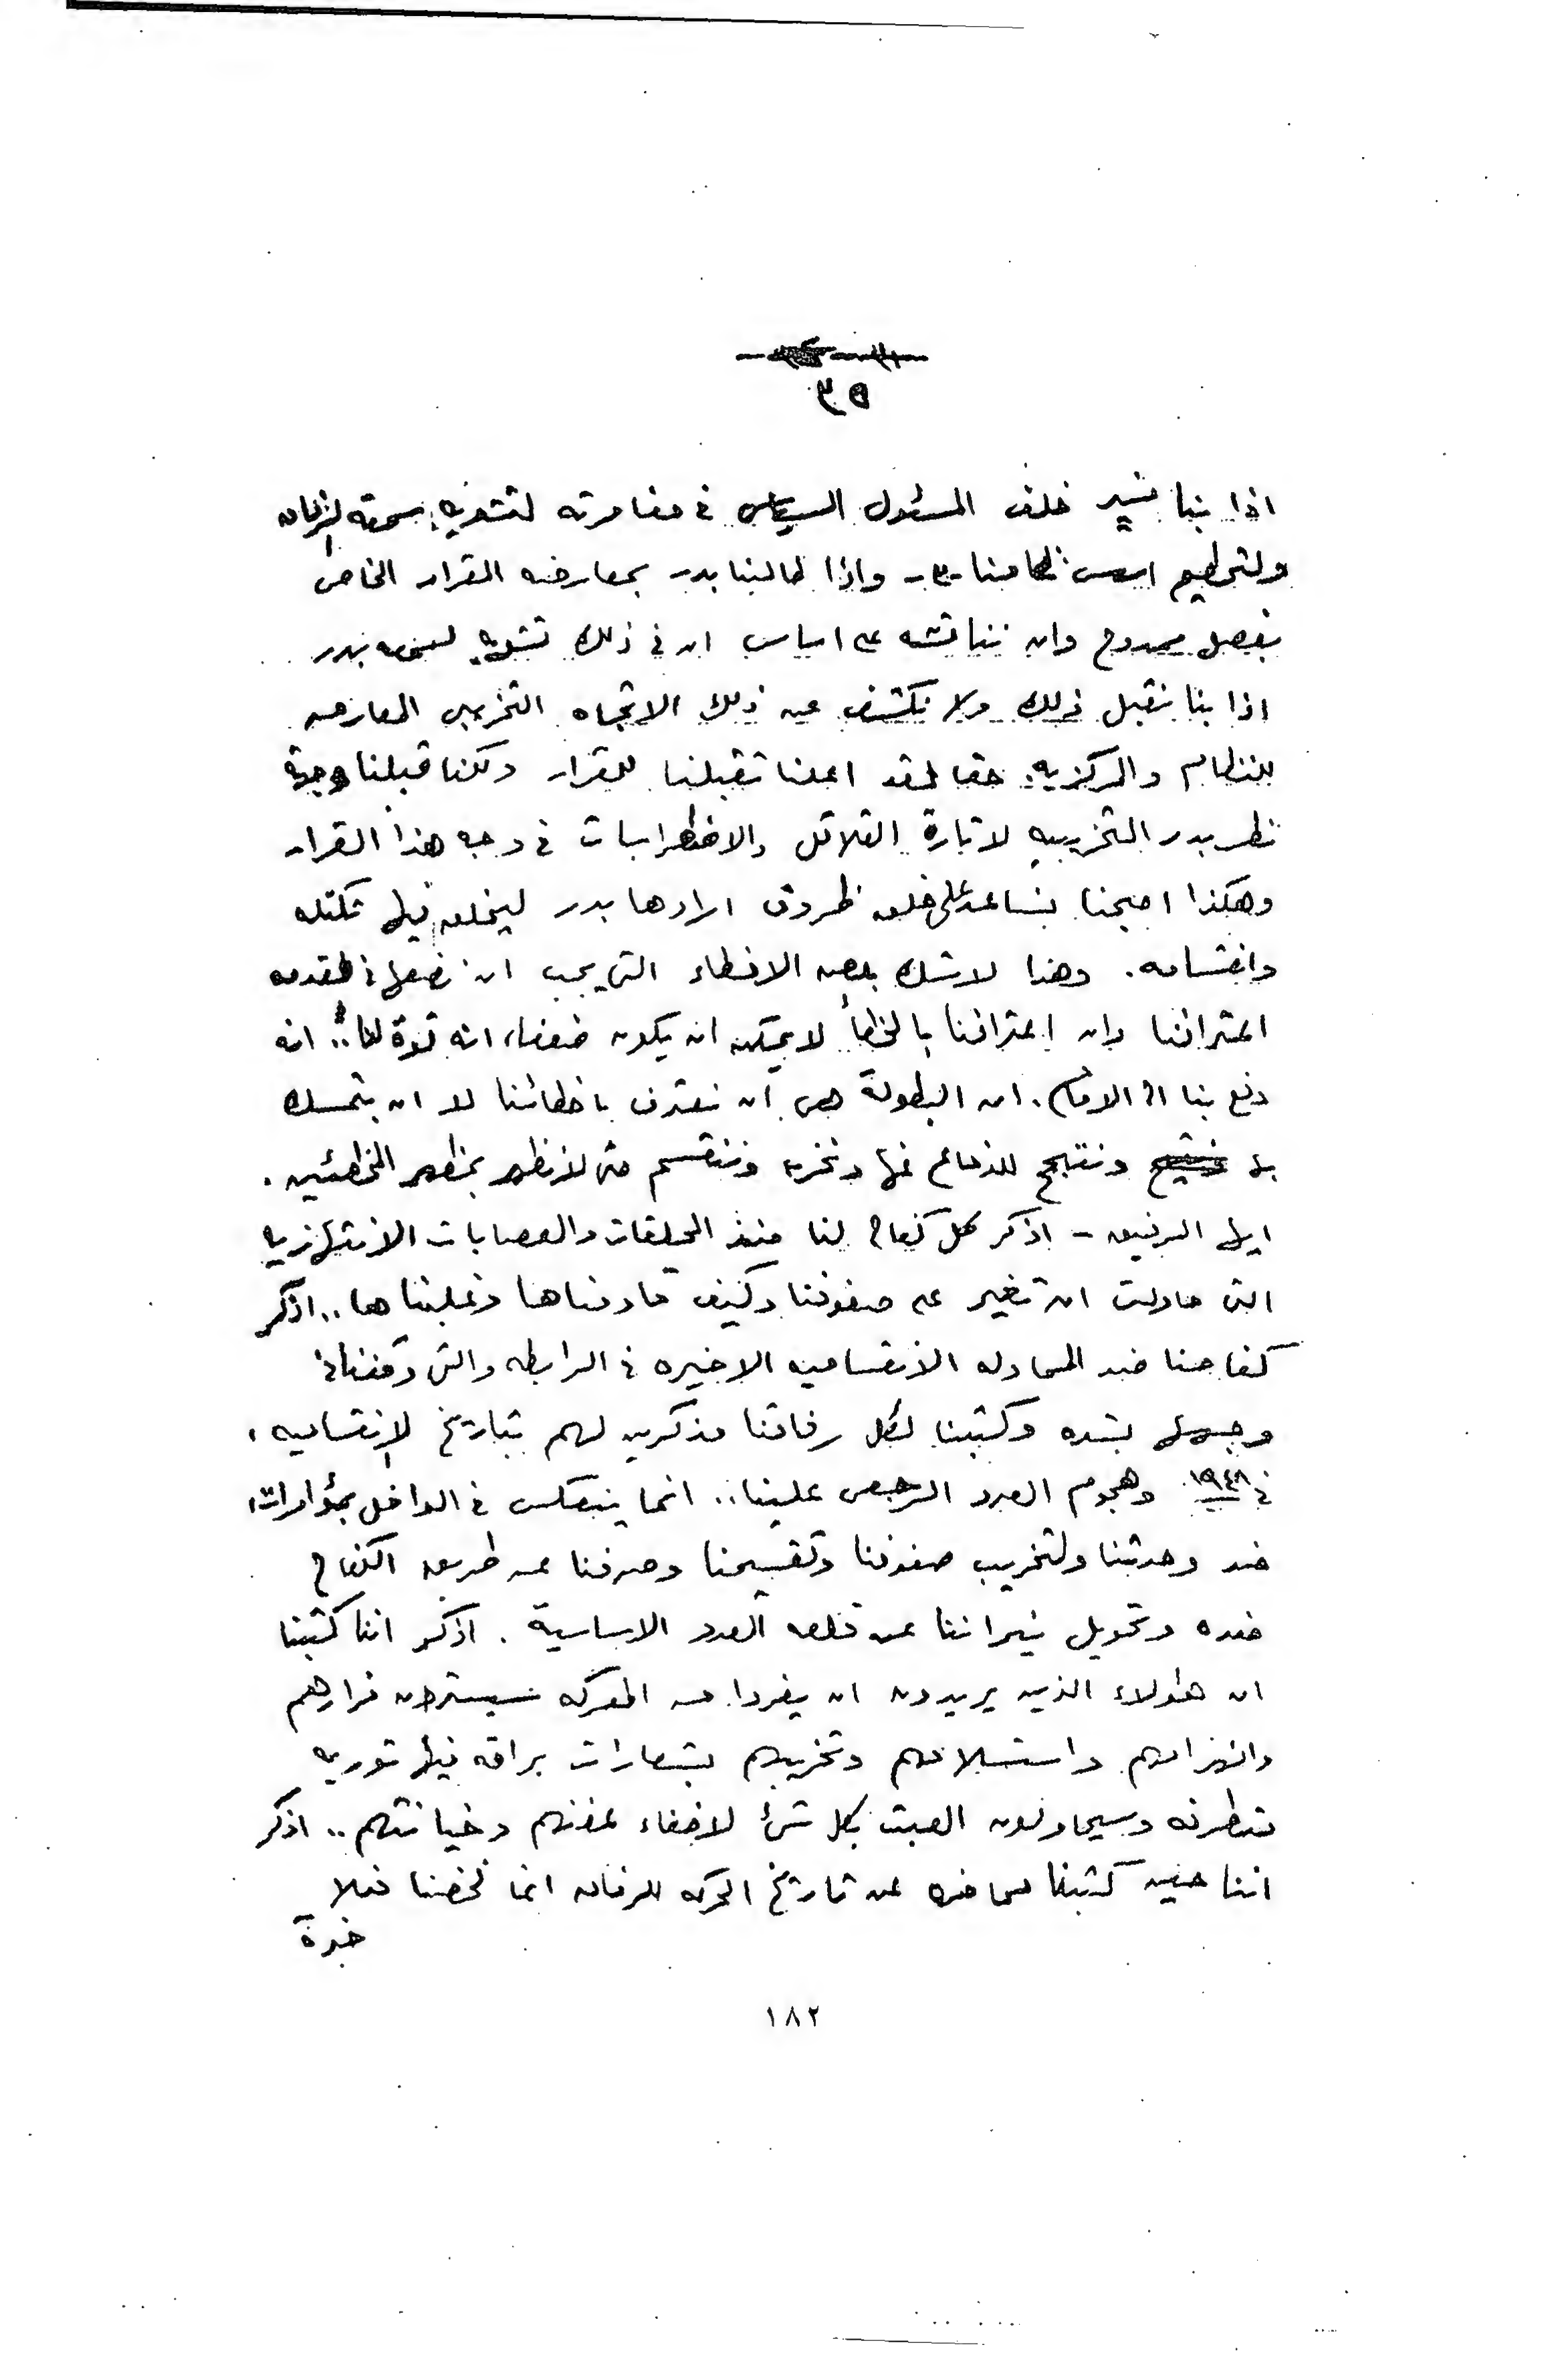 ٣٥
اذا بنا نسير خلف المسئول السياسى فى مغامرته لتشويه سمعة الزملاء
ولتحطيم اسس نظامنا -٣- واذا طالبنا بدر بمعارضه القرار الخاص
بفصل ممدوح وان نناقشه على اساس ان فى ذلك تشويه لسمعه بدر
اذا بنا نقبل ذلك ولا نكشف عن ذلك الاتجاه التخريبى المعارض
للنظام والمركزيه. حقا لقد اعلنا تقبلنا للقرار ولكنا قبلنا وجهة
نظر بدر التخريبيه لاثارة القلاقل والاضطرابات فى وجه هذا القرار
وهكذا اصبحنا نساعد على خلق ظروف ارادها بدر ليخلق فيها تكتله
وانقسامه. وهذا لاشك بعض الاخطاء التى يجب ان نضعها فى مقدمه
اعترافنا وان اعترافنا بالخطأ لا يمكن ان يكون ضعفا، انه قوة لنا.. انه
دفع بنا الى الامام. ان البطولة هى ان نعترف باخطائنا لا ان نتمسك
بها ونتبجح للدفاع عنها ونخرب وننقسم حتى لا نظهر بمظهر المخطئين.
ايها الرفيق - اذكر كل كفاح لنا ضد الحلقات والعصابات الانتهازيه
التى حاولت ان تغير على صفوفنا وكيف قاومناها وغلبناها.. اذكر
كفاحنا ضد المحاوله الانقساميه الاخيره فى الرابطه والتى وقفنا فى
وجهها بشده وكتبنا لكل رفاقنا مذكرين لهم بتاريخ الانقساميه،
فى ١٩٤٨ وهجوم العدو الرجعى علينا.. انما ينعكس فى الداخل بمؤامرات،
ضد وحدتنا ولتخريب صفوفنا وتقسيمنا وصرفنا عن طريق الكفاح
ضده وتحويل نيراننا عن قلعه العدو الاساسية. اذكر اننا كتبنا
ان هؤلاء الذين يريدون ان يفروا من المعركه سيسترون فرارهم
وانهزامهم واستسلامهم وتخريبهم بشعارات براقه فيها ثوريه
متطرفه وسيحاولون العبث بكل شئ لاخفاء عفنهم وخيانتهم.. اذكر
اننا حين كتبنا محاضره عن تاريخ الحركه للرفاق انما لخصنا فعلا
خبرة
١٨٢